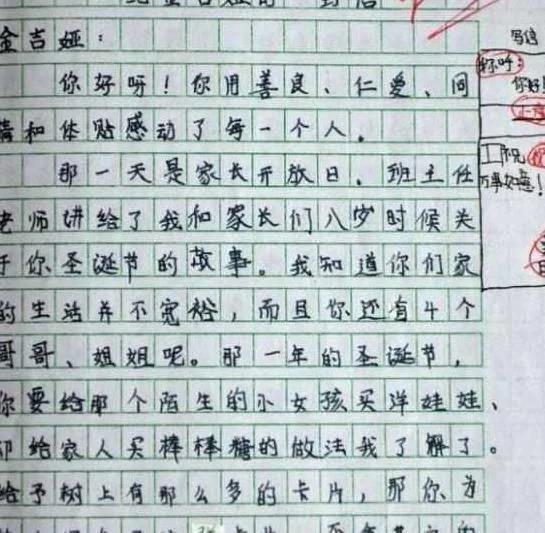 金吉娅：
你好呀！你用善良、仁爱、同
情和体贴感动了每一个人。
那一天是家长开放日。班主任
老师讲给了我和家长们八岁时候关
于你圣诞节的故事。我知道你们家
的生活并不宽裕，而且你还有4个
哥哥、姐姐呢。那一年的圣诞节，
你要给那个陌生的小女孩买洋娃娃、
却给家人买棒棒糖的做法我了解了。
给予树上有那么多的卡片，那你为
写信
称呼：
你好！
正文
祝
万事如意！